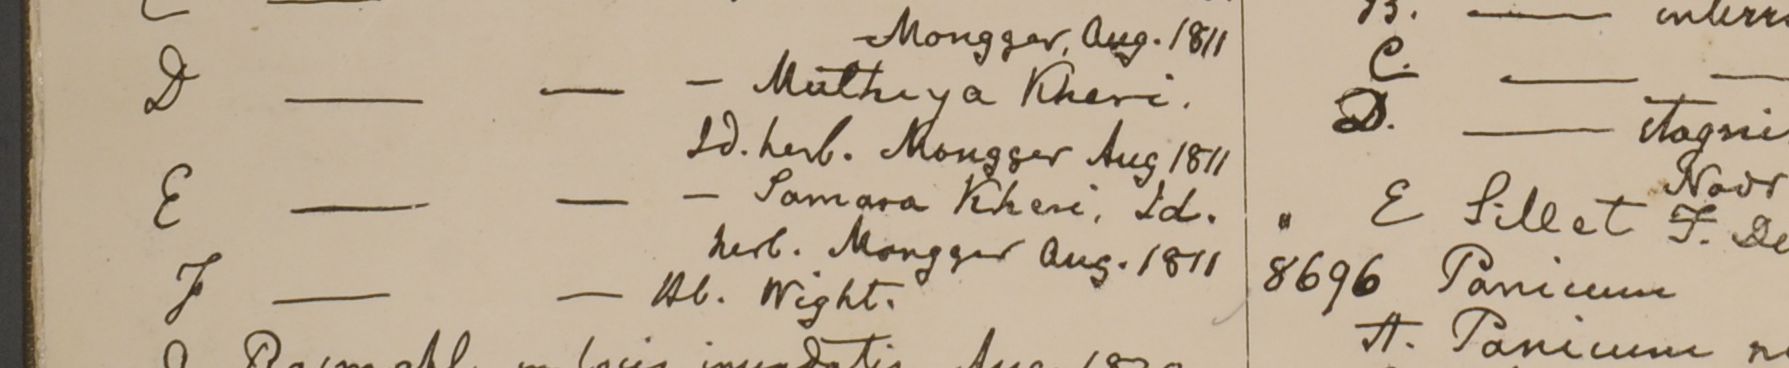 Mongger, Aug. 1811
D — — - Muthiya Kheri.
Id. herb. Mongger Aug 1811
E — — - Samara Kheri, Id.
herb. Mongger Aug. 1811
F — — Hb. Wight.
in locis inundatis Aug.
B. —
C. — —
D. — stagni
Novr
" E Sillet F. De
8696 Panicum
A. Panicum